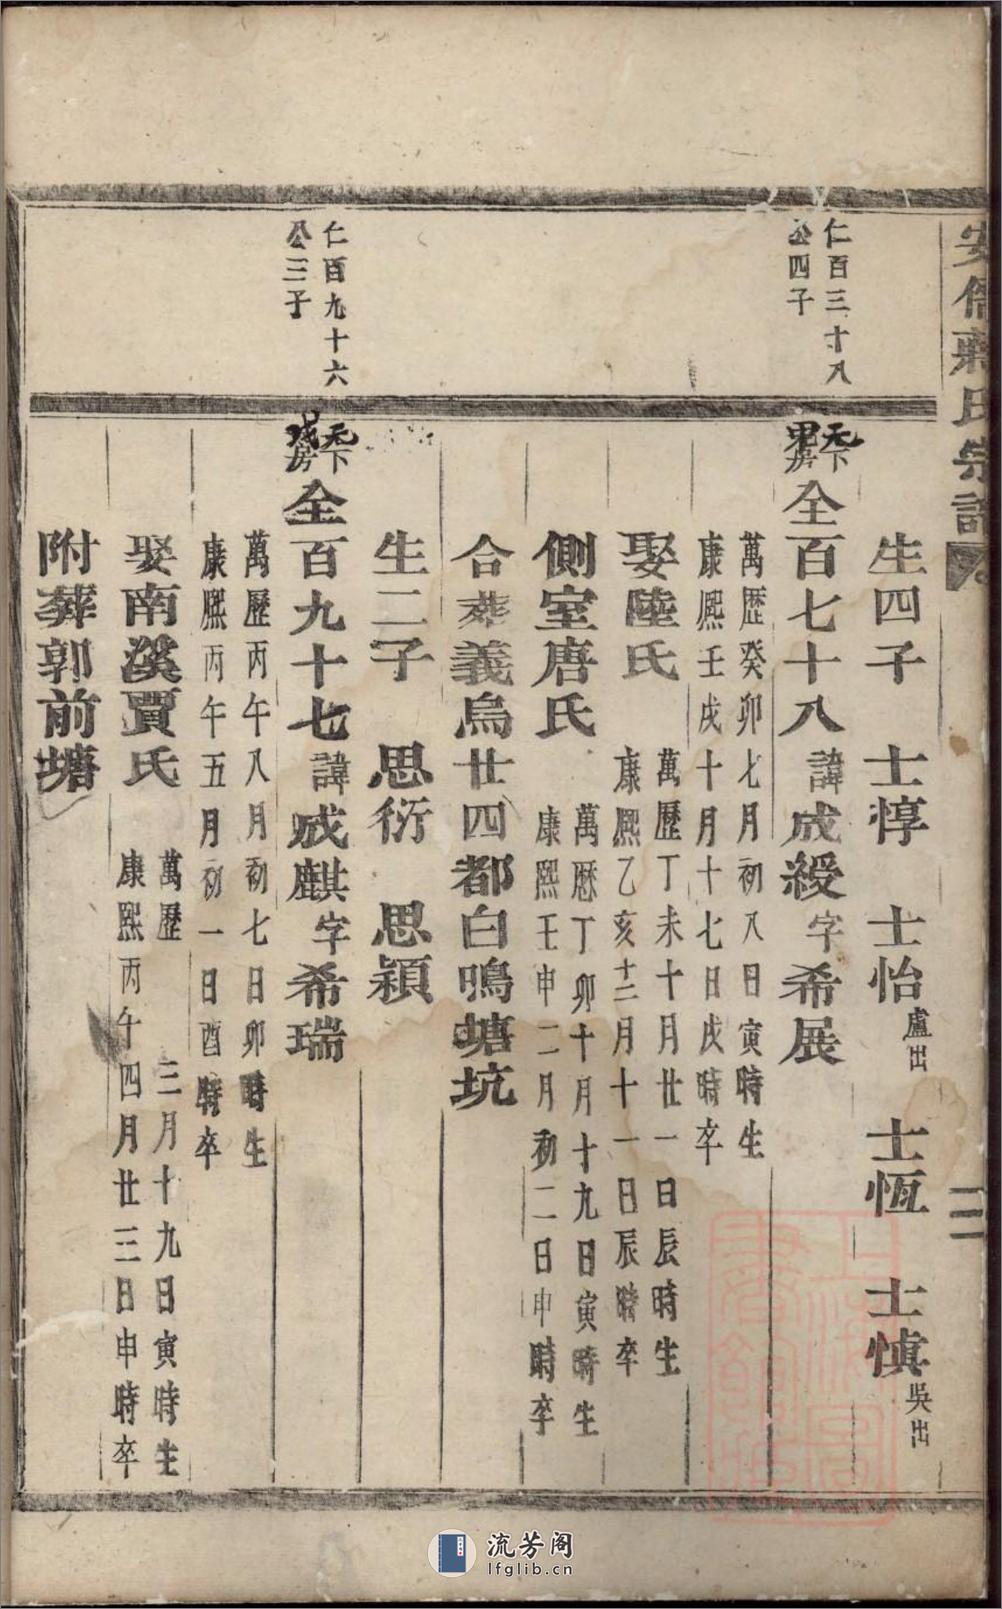 氏宗譜
生四子 士惇 士怡盧出 士恆 士慎吳出
仁百三十八
公四子
天下
房
全百七十八諱成綬字希展
萬歷癸卯七月初八日寅時生
康熙壬戌十月十七日戌時卒
娶陸氏
萬歷丁未十月廿一日辰時生
康熙乙亥十二月十一日辰時卒
側室唐氏
萬歷丁卯十月十九日寅時生
康熙壬申二月初二日申時卒
合葬義烏廿四都白鳴塘坑
生二子 思衍 思穎
仁百九十六
公三子
天下
房
全百九十七諱成麒字希瑞
萬歷丙午八月初七日卯時生
康熙丙午五月初一日酉時卒
娶南溪賈氏
萬歷 三月十九日寅時生
康熙丙午四月廿三日申時卒
附葬郭前塘
流芳阁
lfglib.cn